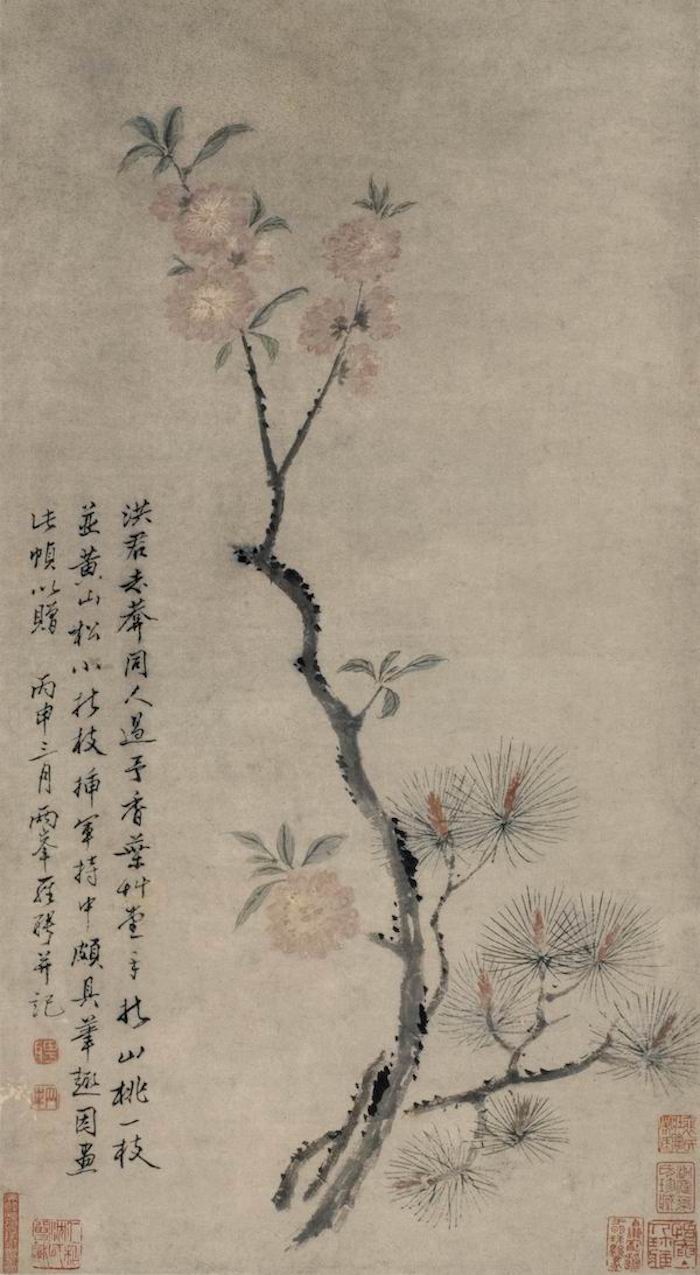 洪君同人過予香葉艸堂手折山桃一枝
並黃山松小折枝插軍持中頗具趣因畫
此幀以贈 丙申三月兩峯羅聘并記